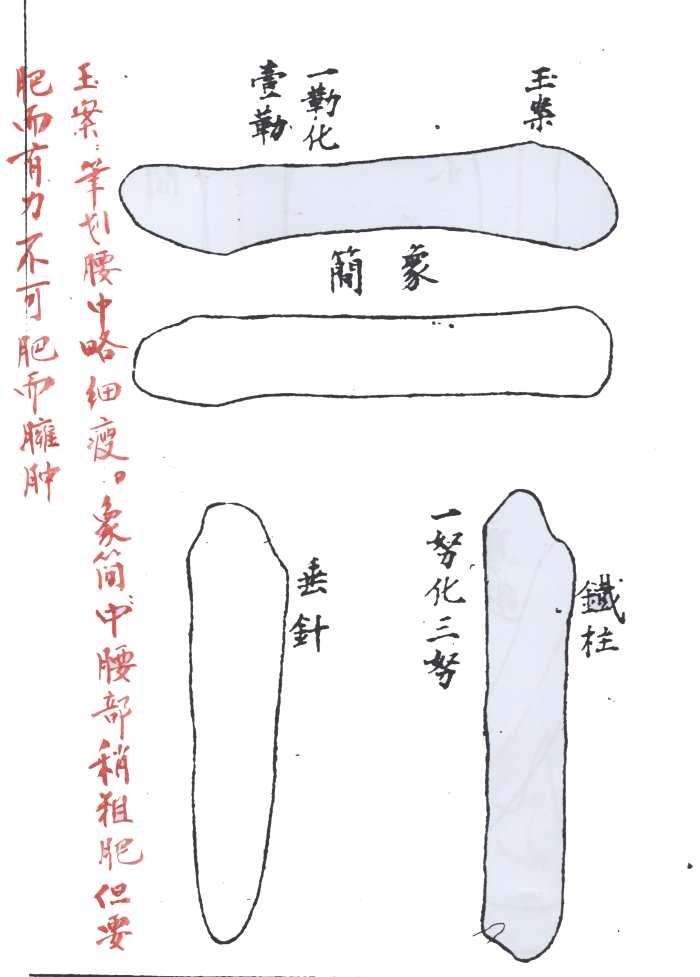 玉案
一勒化
壹勒
簡象
鐵柱
一努化三努
垂針
玉案：筆划腰中略细瘦。象简中腰部稍粗肥但要
肥而有力不可肥而臃肿